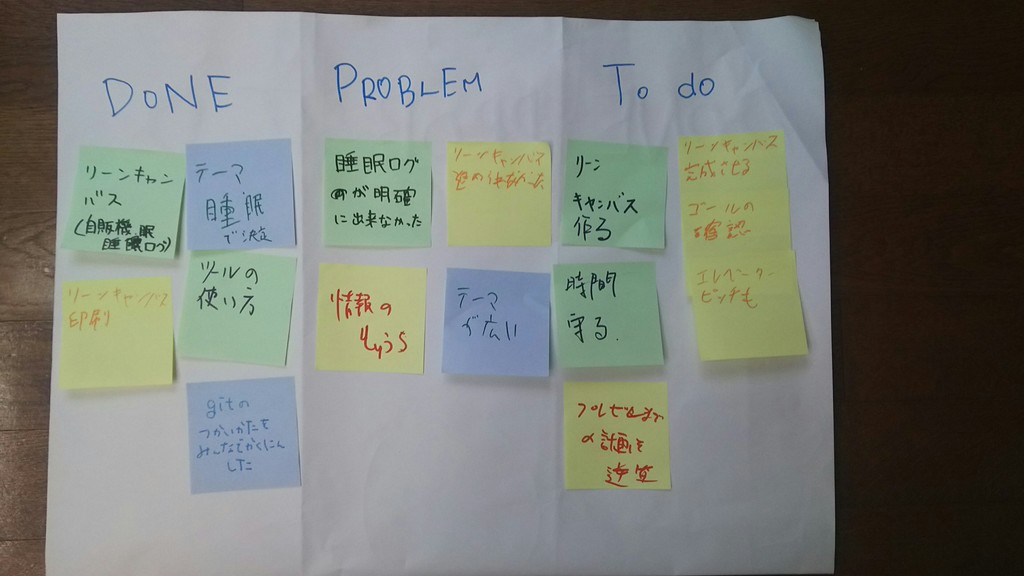 DONE
リーンキャン
バス
(自販機、眠
睡眠ログ)
テーマ
睡眠
で決定
リーンキャンバス
印刷
ツールの
使い方
gitの
つかいかたを
みんなでかくにん
した
PROBLEM
睡眠ログ
が明確
に出来なかった
リーンキャンバス
情報の
テーマ
が広い
To do
リーン
キャンバス
作る
リーンキャンバス
完成させる
ゴールの
確認
時間
守る.
エレベーター
ピッチも
の計画を
逆算